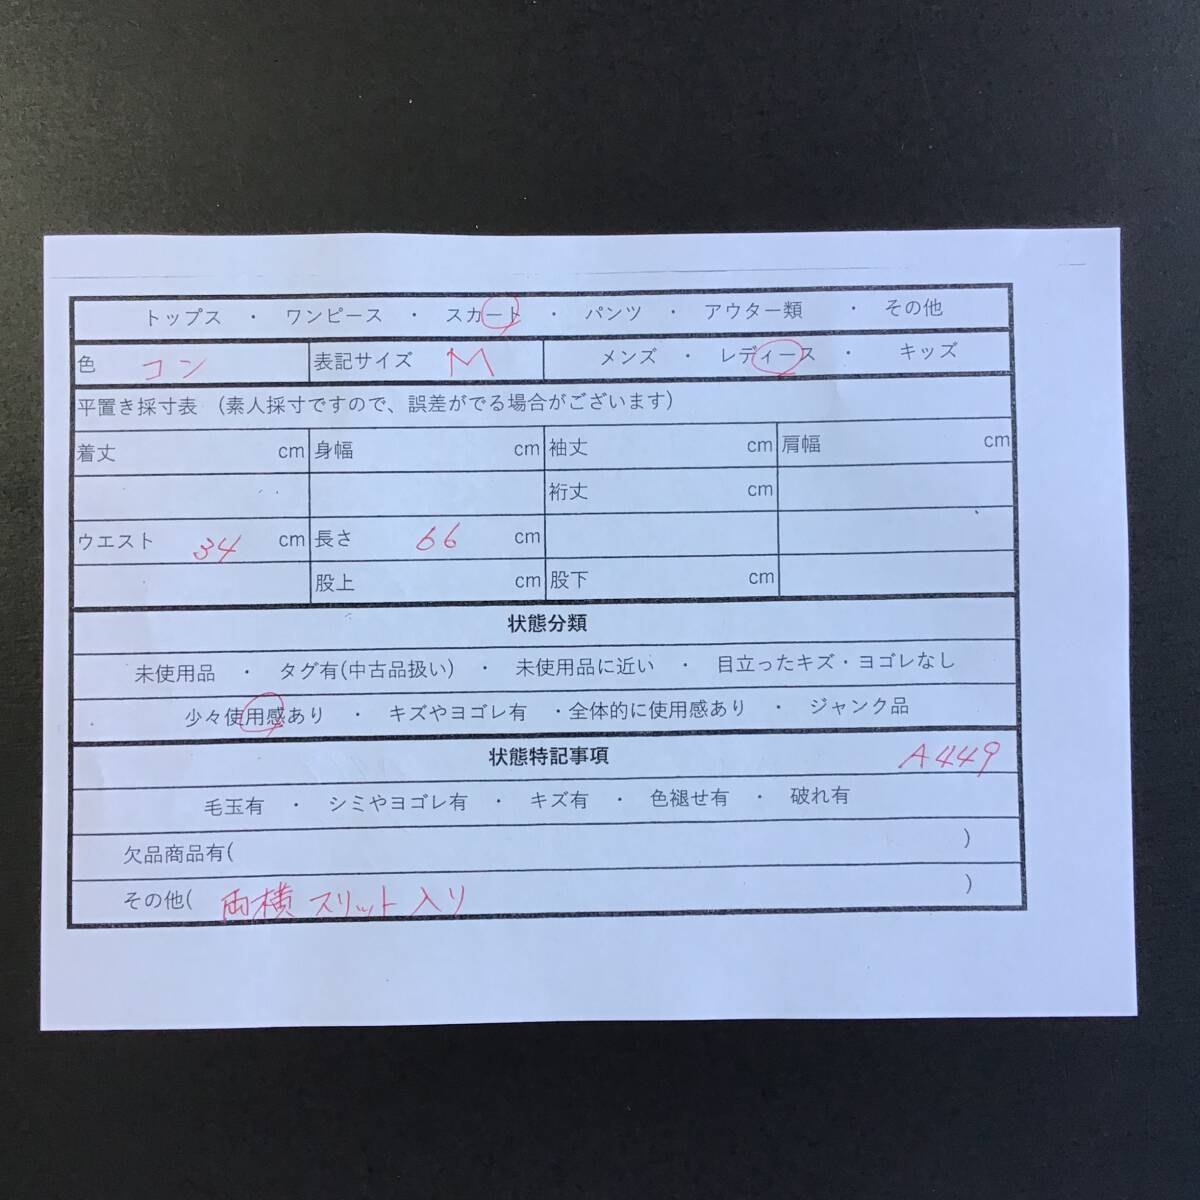 トップス ・ ワンピース ・ スカート ・ パンツ ・ アウター類 ・ その他
色 コン 表記サイズ M メンズ ・ レディース ・ キッズ
平置き採寸表 (素人採寸ですので、誤差がでる場合がございます)
着丈 cm 身幅 cm 袖丈 cm 肩幅 cm
裄丈 cm
ウエスト 34 cm 長さ 66 cm
股上 cm 股下 cm
状態分類
未使用品 ・ タグ有(中古品扱い) ・ 未使用品に近い ・ 目立ったキズ・ヨゴレなし
少々使用感あり ・ キズやヨゴレ有 ・全体的に使用感あり ・ ジャンク品
状態特記事項 A449
毛玉有 ・ シミやヨゴレ有 ・ キズ有 ・ 色褪せ有 ・ 破れ有
欠品商品有( )
その他( 両横スリット入り )